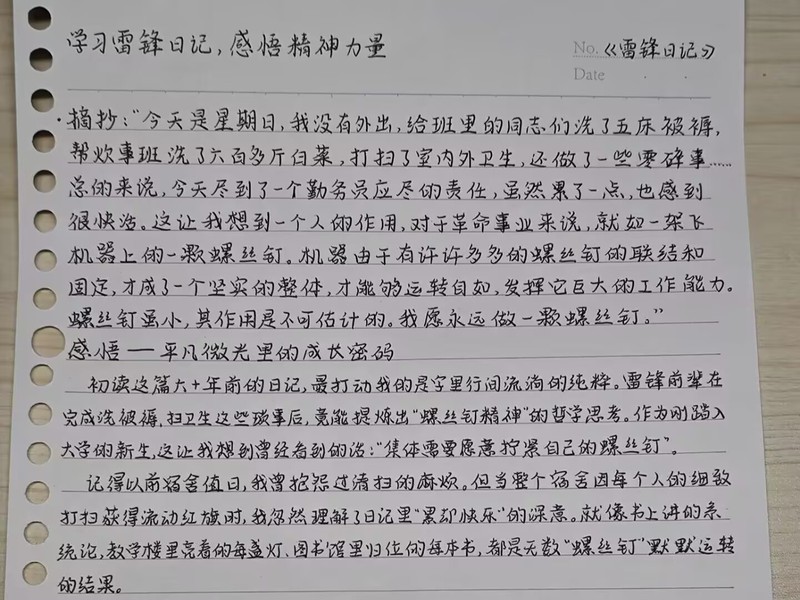 学习雷锋日记，感悟精神力量
No.《雷锋日记》
Date
·摘抄：“今天是星期日，我没有外出，给班里的同志们洗了五床被褥，
帮炊事班洗了六百多斤白菜，打扫了室内外卫生，还做了一些零碎事……
总的来说，今天尽到了一个勤务员应尽的责任，虽然累了一点，也感到
很快活。这让我想到一个人的作用，对于革命事业来说，就如一架飞
机器上的一颗螺丝钉。机器由于有许许多多的螺丝钉的联结和
固定，才成了一个坚实的整体，才能够运转自如，发挥它巨大的工作能力。
螺丝钉虽小，其作用是不可估计的。我愿永远做一颗螺丝钉。”
感悟——平凡微光里的成长密码
初读这篇六十年前的日记，最打动我的是字里行间流淌的纯粹。雷锋前辈在
完成洗被褥，扫卫生这些琐事后，竟能提炼出“螺丝钉精神”的哲学思考。作为刚踏入
大学的新生，这让我想到曾经看到的话：“集体需要愿意拧紧自己的螺丝钉”。
记得以前宿舍值日，我曾抱怨过清扫的麻烦。但当整个宿舍因每个人的细致
打扫获得流动红旗时，我忽然理解了日记里“累却快乐”的深意。就像书上讲的系
统论，教学楼里亮着的每盏灯、图书馆里归位的每本书，都是无数“螺丝钉”默默运转
的结果。